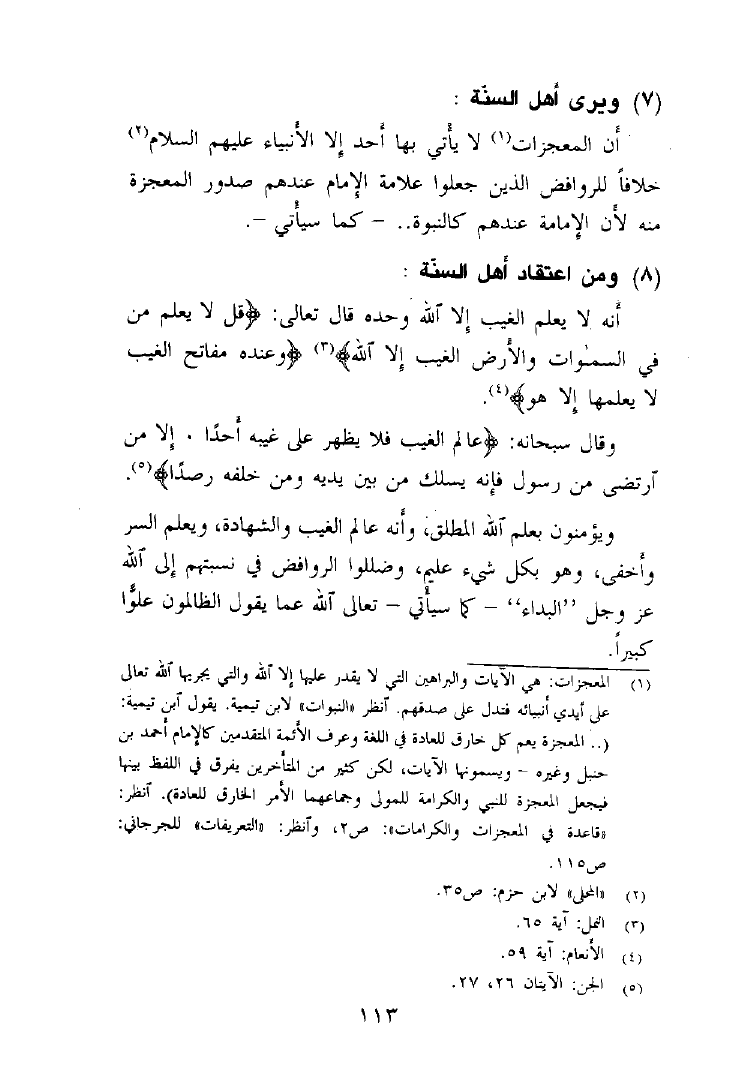 (٧) ويرى أهل السنّة :
أن المعجزات(١) لا يأتي بها أحد إلا الأنبياء عليهم السلام(٢)
خلافاً للروافض الذين جعلوا علامة الإمام عندهم صدور المعجزة
منه لأن الإمامة عندهم كالنبوة.. – كما سيأتي –.
(٨) ومن اعتقاد أهل السنّة :
أنه لا يعلم الغيب إلا ٱلله وحده قال تعالى: ﴿قل لا يعلم من
في السمٰوات والأرض الغيب إلا ٱلله﴾(٣) ﴿وعنده مفاتح الغيب
لا يعلمها إلا هو﴾(٤).
وقال سبحانه: ﴿عالم الغيب فلا يظهر على غيبه أحدًا ٠ إلا من
ٱرتضى من رسول فإنه يسلك من بين يديه ومن خلفه رصدًا﴾(٥).
ويؤمنون بعلم ٱلله المطلق، وأنه عالم الغيب والشهادة، ويعلم السر
وأخفى، وهو بكل شيء عليم، وضللوا الروافض في نسبتهم إلى ٱلله
عز وجل ‟البداء” – كما سيأتي – تعالى ٱلله عما يقول الظالمون علوًّا
كبيراً.
(١) المعجزات: هي الآيات والبراهين التي لا يقدر عليها إلا ٱلله والتي يجريها ٱلله تعالى
على أيدي أنبيائه فتدل على صدقهم. ٱنظر «النبوات» لابن تيمية. يقول ٱبن تيمية:
(.. المعجزة يعم كل خارق للعادة في اللغة وعرف الأئمة المتقدمين كالإمام أحمد بن
حنبل وغيره – ويسمونها الآيات، لكن كثير من المتأخرين يفرق في اللفظ بينها
فيجعل المعجزة للنبي والكرامة للمولى وجماعهما الأمر الخارق للعادة). ٱنظر:
«قاعدة في المعجزات والكرامات»: ص٢، وٱنظر: «التعريفات» للجرجاني:
ص١١٥.
(٢) «المحلى» لابن حزم: ص٣٥.
(٣) النمل: آية ٦٥.
(٤) الأنعام: آية ٥٩.
(٥) الجن: الآيتان ٢٦، ٢٧.
١١٣